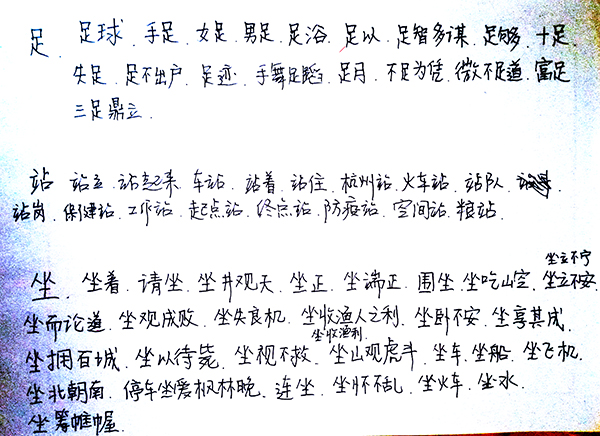 足. 足球. 手足. 女足. 男足. 足浴. 足以. 足智多谋. 足够. 十足.
失足. 足不出户. 足迹. 手舞足蹈. 足月. 不足为凭. 微不足道. 富足
三足鼎立.
站 站立. 站起来. 车站. 站着. 站住. 杭州站. 火车站. 站队.
站岗. 保健站. 工作站. 起点站. 终点站. 防疫站. 空间站. 粮站.
坐立不宁
坐. 坐着. 请坐. 坐井观天. 坐正. 坐端正. 围坐. 坐吃山空. 坐立不安.
坐而论道. 坐观成败. 坐失良机. 坐收渔人之利. 坐卧不安. 坐享其成.
坐收渔利.
坐拥百城. 坐以待毙. 坐视不救. 坐山观虎斗. 坐车. 坐船. 坐飞机.
坐北朝南. 停车坐爱枫林晚. 连坐. 坐怀不乱. 坐火车. 坐水.
坐筹帷幄.